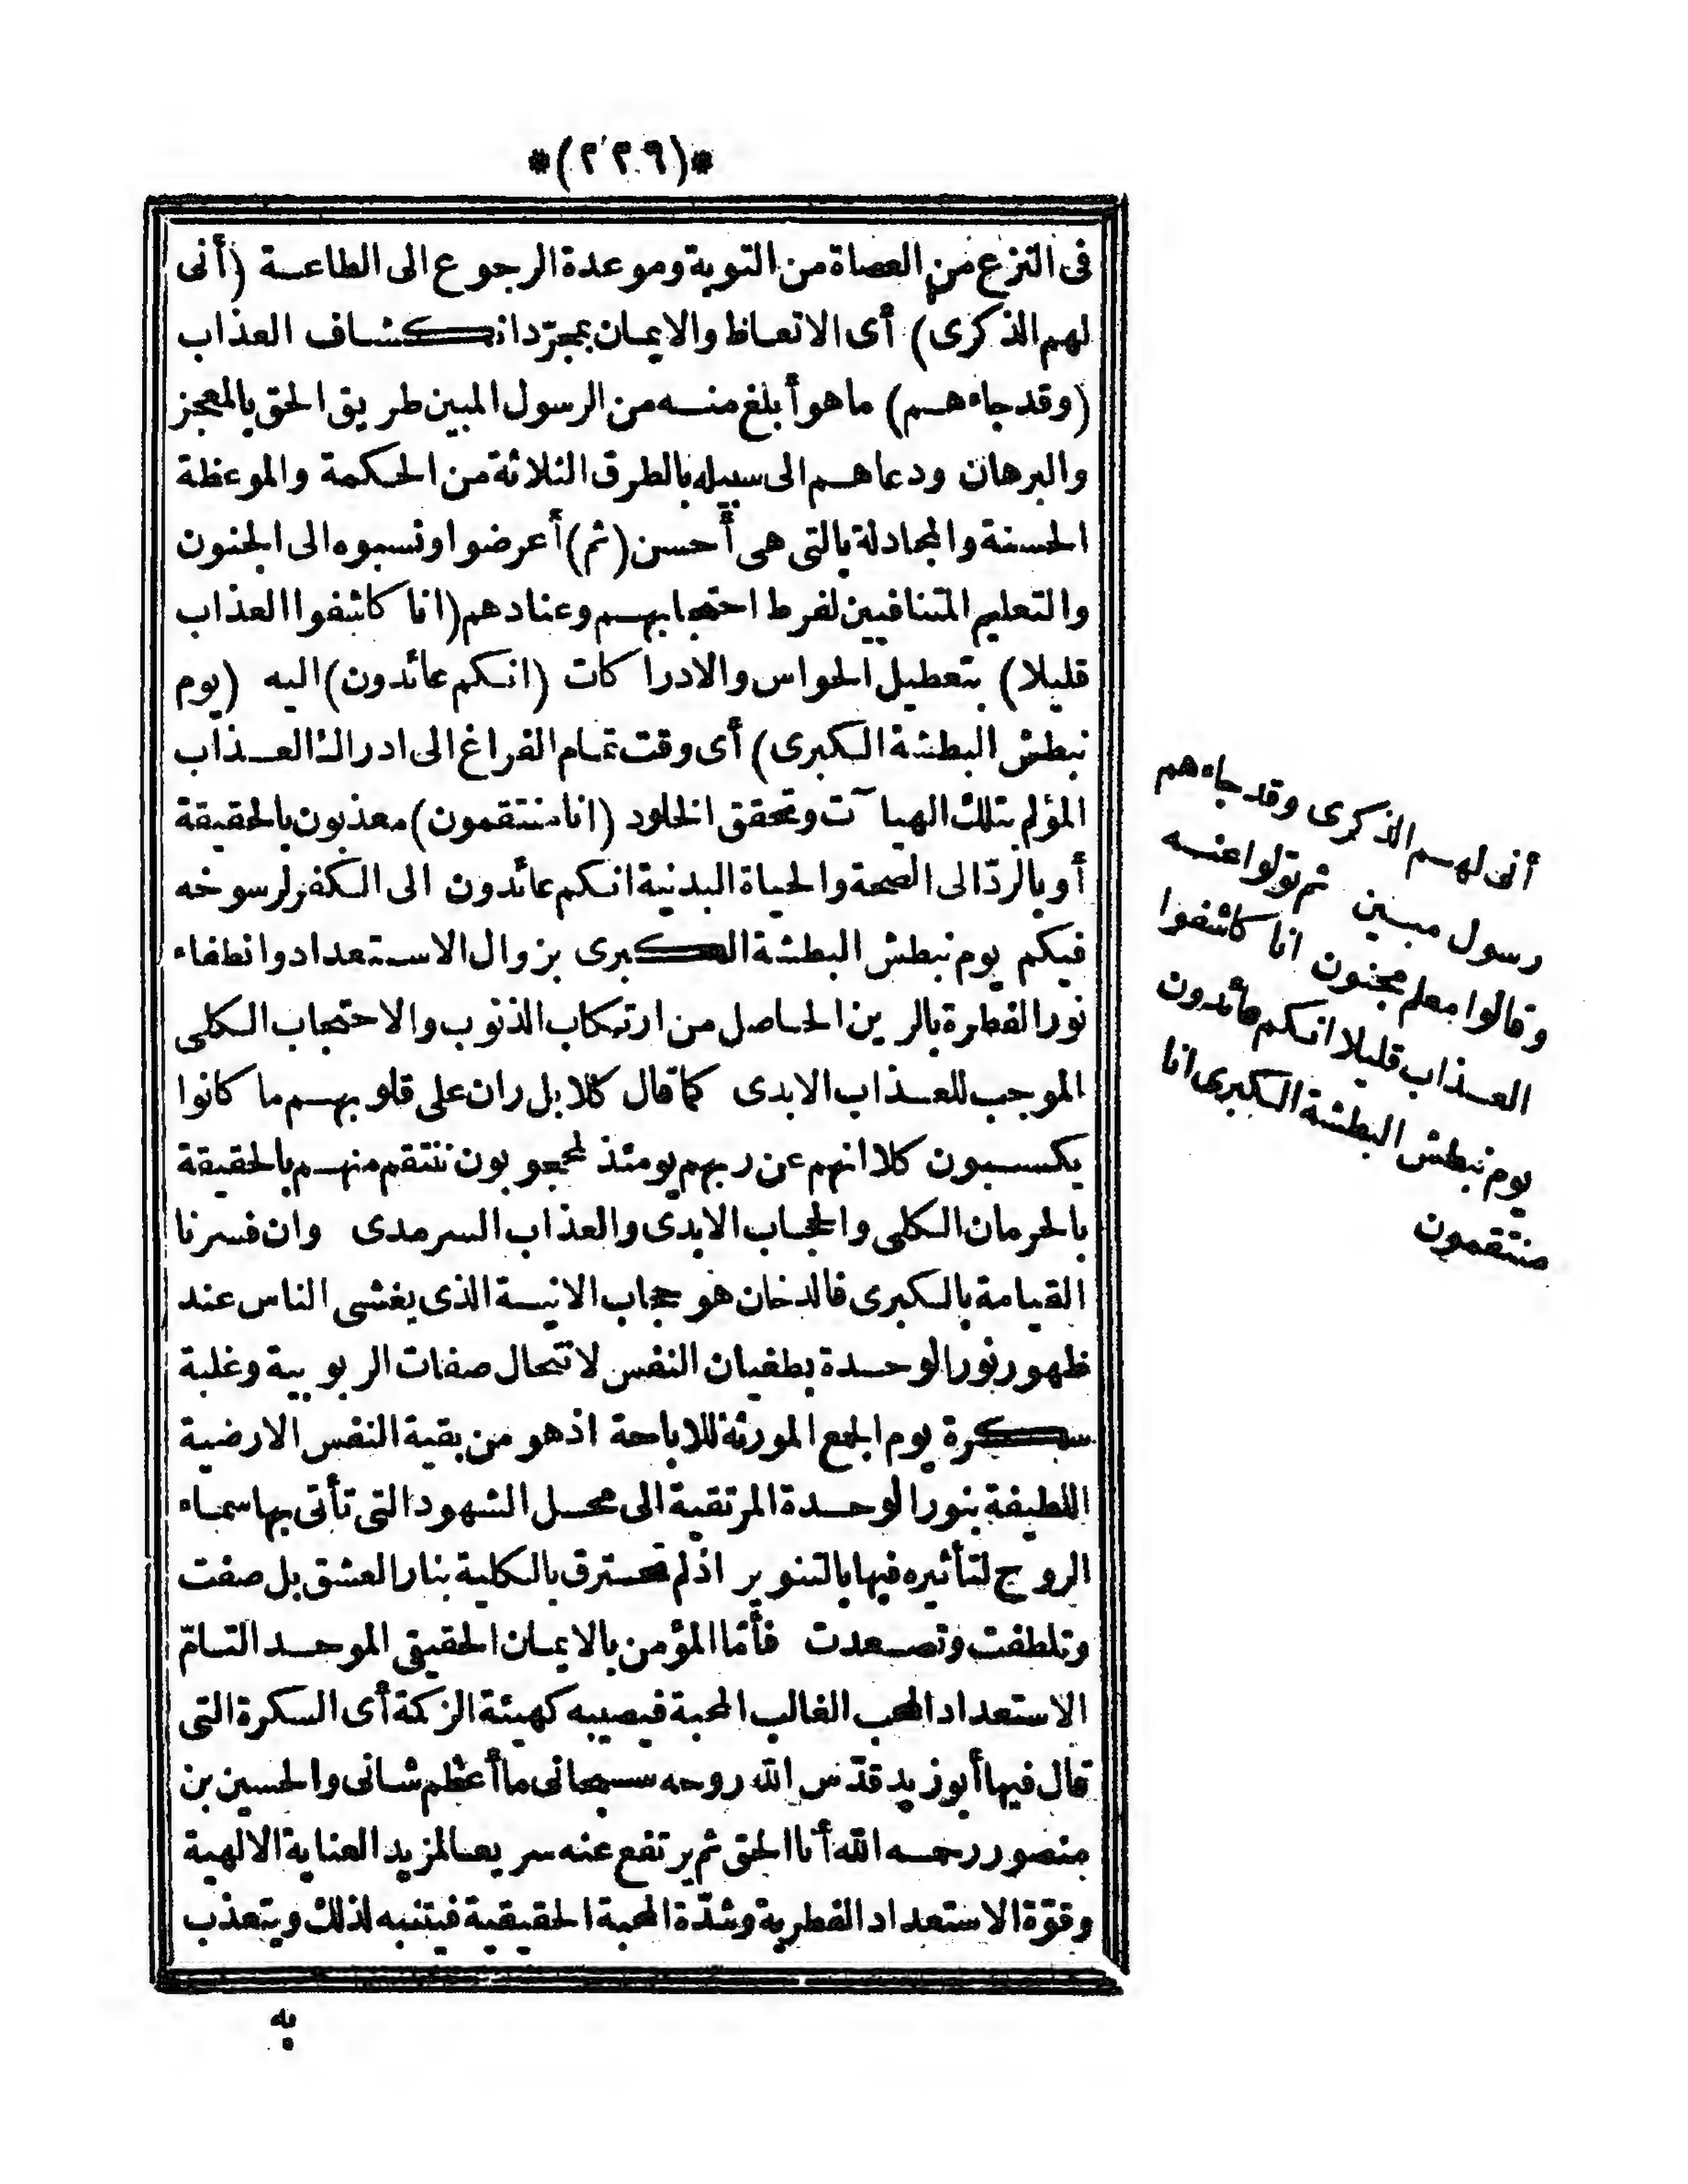 *(٢٣٩)*
فى النزع من العصاة من التوبة وموعدة الرجوع الى الطاعة (أنى
لهم الذكرى) أى الاتعاظ والايمان بمجرّد انكشاف العذاب
(وقد جاءهم) ما هو أبلغ منه من الرسول المبين طريق الحق بالمعجز
والبرهان ودعاهم الى سبيله بالطرق الثلاثة من الحكمة والموعظة
الحسنة والمجادلة بالتى هى أحسن (ثم) أعرضوا ونسبوه الى الجنون
والتعليم المتنافيين لفرط احتجابهم وعنادهم (انا كاشفوا العذاب
قليلا) بتعطيل الحواس والادراكات (انكم عائدون) اليه (يوم
نبطش البطشة الكبرى) أى وقت تمام الفراغ الى ادراك العذاب
المؤلم بتلك الهيآت وتحقق الخلود (انا منتقمون) معذبون بالحقيقة
أو بالردّ الى الصحة والحياة البدنية انكم عائدون الى الكفر لرسوخه
فيكم يوم نبطش البطشة الكبرى بزوال الاستعداد وانطفاء
نور الفطرة بالرين الحاصل من ارتكاب الذنوب والاحتجاب الكلى
الموجب للعذاب الابدى كما قال كلا بل ران على قلوبهم ما كانوا
يكسبون كلا انهم عن ربهم يومئذ لمحجوبون ننتقم منهم بالحقيقة
بالحرمان الكلى والحجاب الابدى والعذاب السرمدى وان فسرنا
القيامة بالكبرى فالدخان هو حجاب الانية الذى يغشى الناس عند
ظهور نور الوحدة بطغيان النفس لانتحال صفات الربوبية وغلبة
سكرة يوم الجمع المورثة للاباحة اذ هو من بقية النفس الارضية
اللطيفة بنور الوحدة المرتقية الى محل الشهود التى تأتى بها سماء
الروح لتأثيره فيها بالتنوير اذ لم تحترق بالكلية بنار العشق بل صفت
وتلطفت وتصعدت فأمّا المؤمن بالايمان الحقيقى الموحد التامّ
الاستعداد المحب الغالب المحبة فيصيبه كهيئة الزكمة أى السكرة التى
قال فيها أبو زيد قدّس الله روحه سبحانى ما أعظم شانى والحسين بن
منصور رحمه الله أنا الحق ثم يرتفع عنه سريعا لمزيد العناية الالهية
وقوّة الاستعداد الفطرية وشدّة المحبة الحقيقية فيتنبه لذلك ويتعذب
به
أنى لهم الذكرى وقد جاءهم
رسول مبين ثم تولوا عنه
وقالوا معلم مجنون انا كاشفوا
العذاب قليلا انكم عائدون
يوم نبطش البطشة الكبرى انا
منتقمون